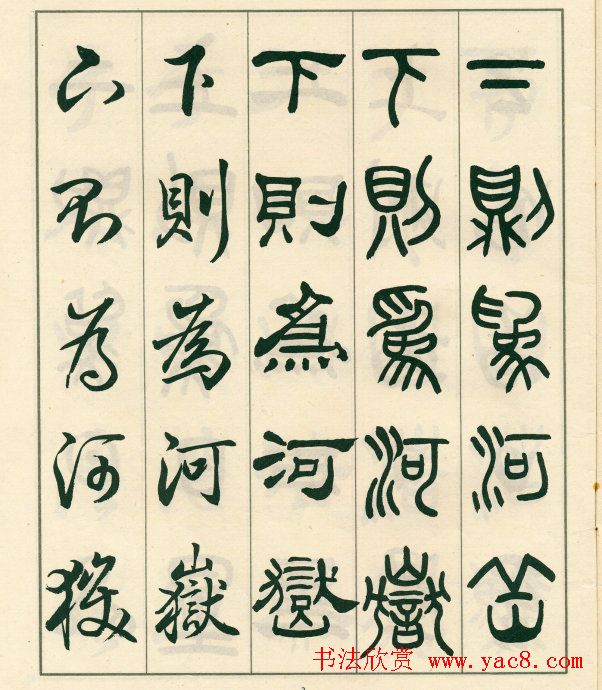 下則爲河岳
下則爲河嶽
下則為河嶽
下則為河嶽
下則為河嶽
书法欣赏 www.yac8.com